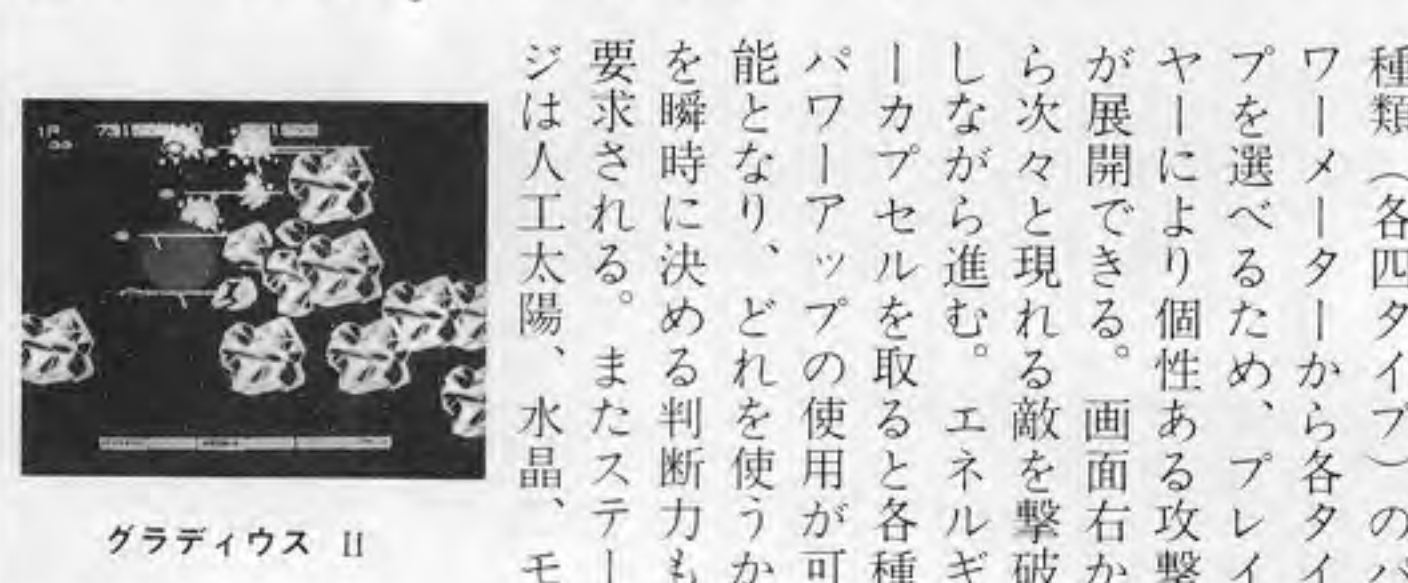 種類（各四タイプ）のパ
ワーメーターから各タイ
プを選べるため、プレイ
ヤーにより個性ある攻撃
が展開できる。画面右か
ら次々と現れる敵を撃破
しながら進む。エネルギ
ーカプセルを取ると各種
パワーアップの使用が可
能となり、どれを使うか
を瞬時に決める判断力も
要求される。またステー
ジは人工太陽、水晶、モ
1P
グラディウス II